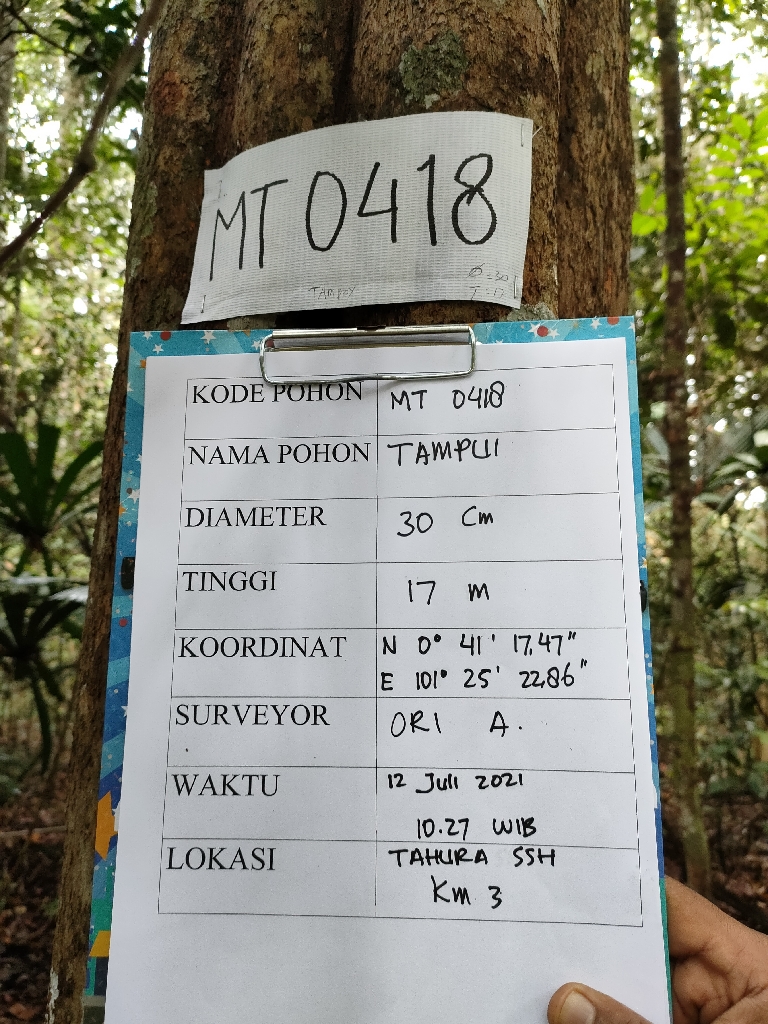 MT 0418
TAMPUI
Ø = 30
T = 17
KODE POHON MT 0418
NAMA POHON TAMPUI
DIAMETER 30 Cm
TINGGI 17 m
KOORDINAT N 0° 41' 17,47"
E 101° 25' 22,86"
SURVEYOR ORI A.
WAKTU 12 Juli 2021
10.27 WIB
LOKASI TAHURA SSH
Km 3